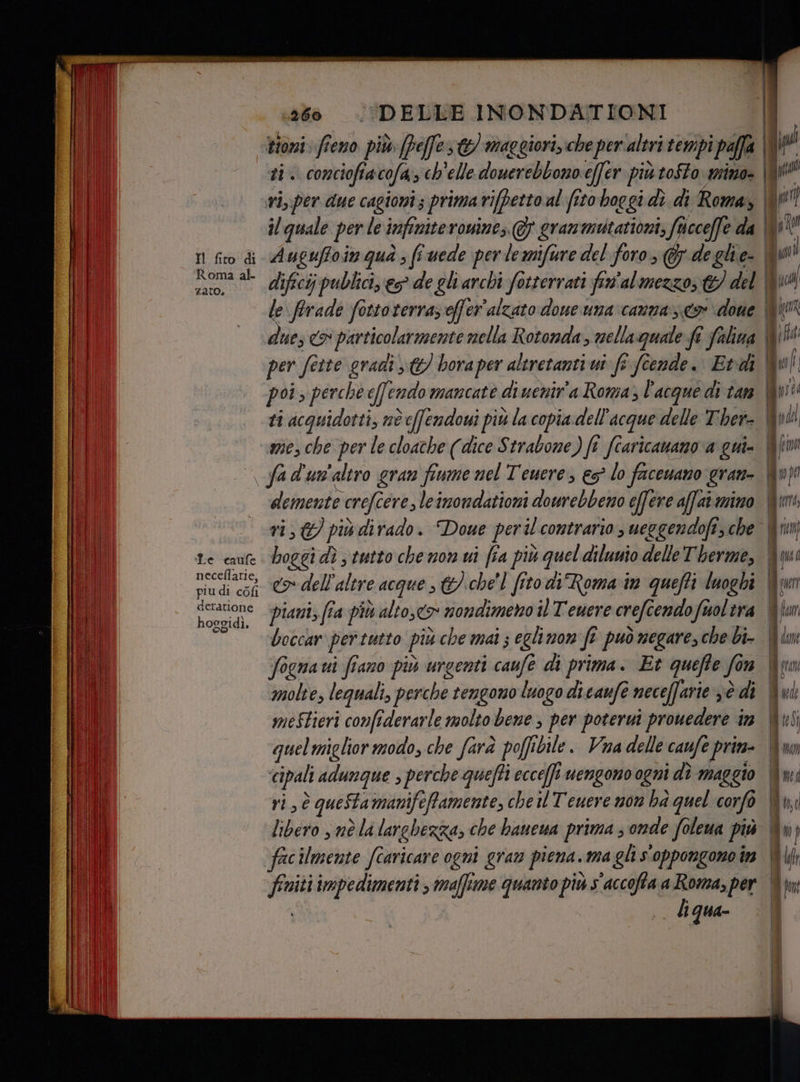 260 DELLE INONDATIONI
tioni sieno più spesse, & maggiori, che per altri tempi passa
ti. conciosiacosa, ch'elle douerebbono esser più tosto mino-
ri, per due cagioni; prima rispetto al sito hoggi dì di Roma,
il quale per le infinite rouine, & gran mutationi, successe da
Il sito di
Roma al-
zato.
Augusto in quà, si uede per le misure del foro, & de gli e-
dificij publici, & de gli archi sotterrati sin'al mezzo, & del
le strade sotto terra, esser'alzato doue una canna, & doue
due, & particolarmente nella Rotonda, nella quale si saliua
per sette gradi, & hora per altretanti ui si scende. Et dì
poi, perche essendo mancate di uenir'a Roma, l'acque di tan
ti acquidotti, nè essendoui più la copia dell'acque delle Ther-
me, che per le cloache (dice Strabone) si scaricauano a gui-
sa d'un'altro gran fiume nel Teuere, & lo faceuano gran-
demente crescere, le inondationi dourebbeno essere assai mino
ri, & più dirado. Doue per il contrario, ueggendosi, che
Le cause
necessarie,
piu di cōsi
deratione
hoggidì.
hoggi dì, tutto che non ui sia più quel diluuio delle Therme,
& dell'altre acque, & che'l sito di Roma in questi luoghi
piani, sia più alto, & nondimeno il Teuere crescendo suol tra
boccar per tutto più che mai; egli non si può negare, che bi-
sogna ui siano più urgenti cause di prima. Et queste son
molte, lequali, perche tengono luogo di cause necessarie, è di
mestieri considerarle molto bene, per poterui prouedere in
quel miglior modo, che sarà possibile. Vna delle cause prin-
cipali adunque, perche questi eccessi uengono ogni dì maggio
ri, è questa manifestamente, che il Teuere non ha quel corso
libero, nè la larghezza, che haueua prima, onde soleua più
facilmente scaricare ogni gran piena. ma gli s'oppongono in
finiti impedimenti, massime quanto più s'accosta a Roma, per
li qua-